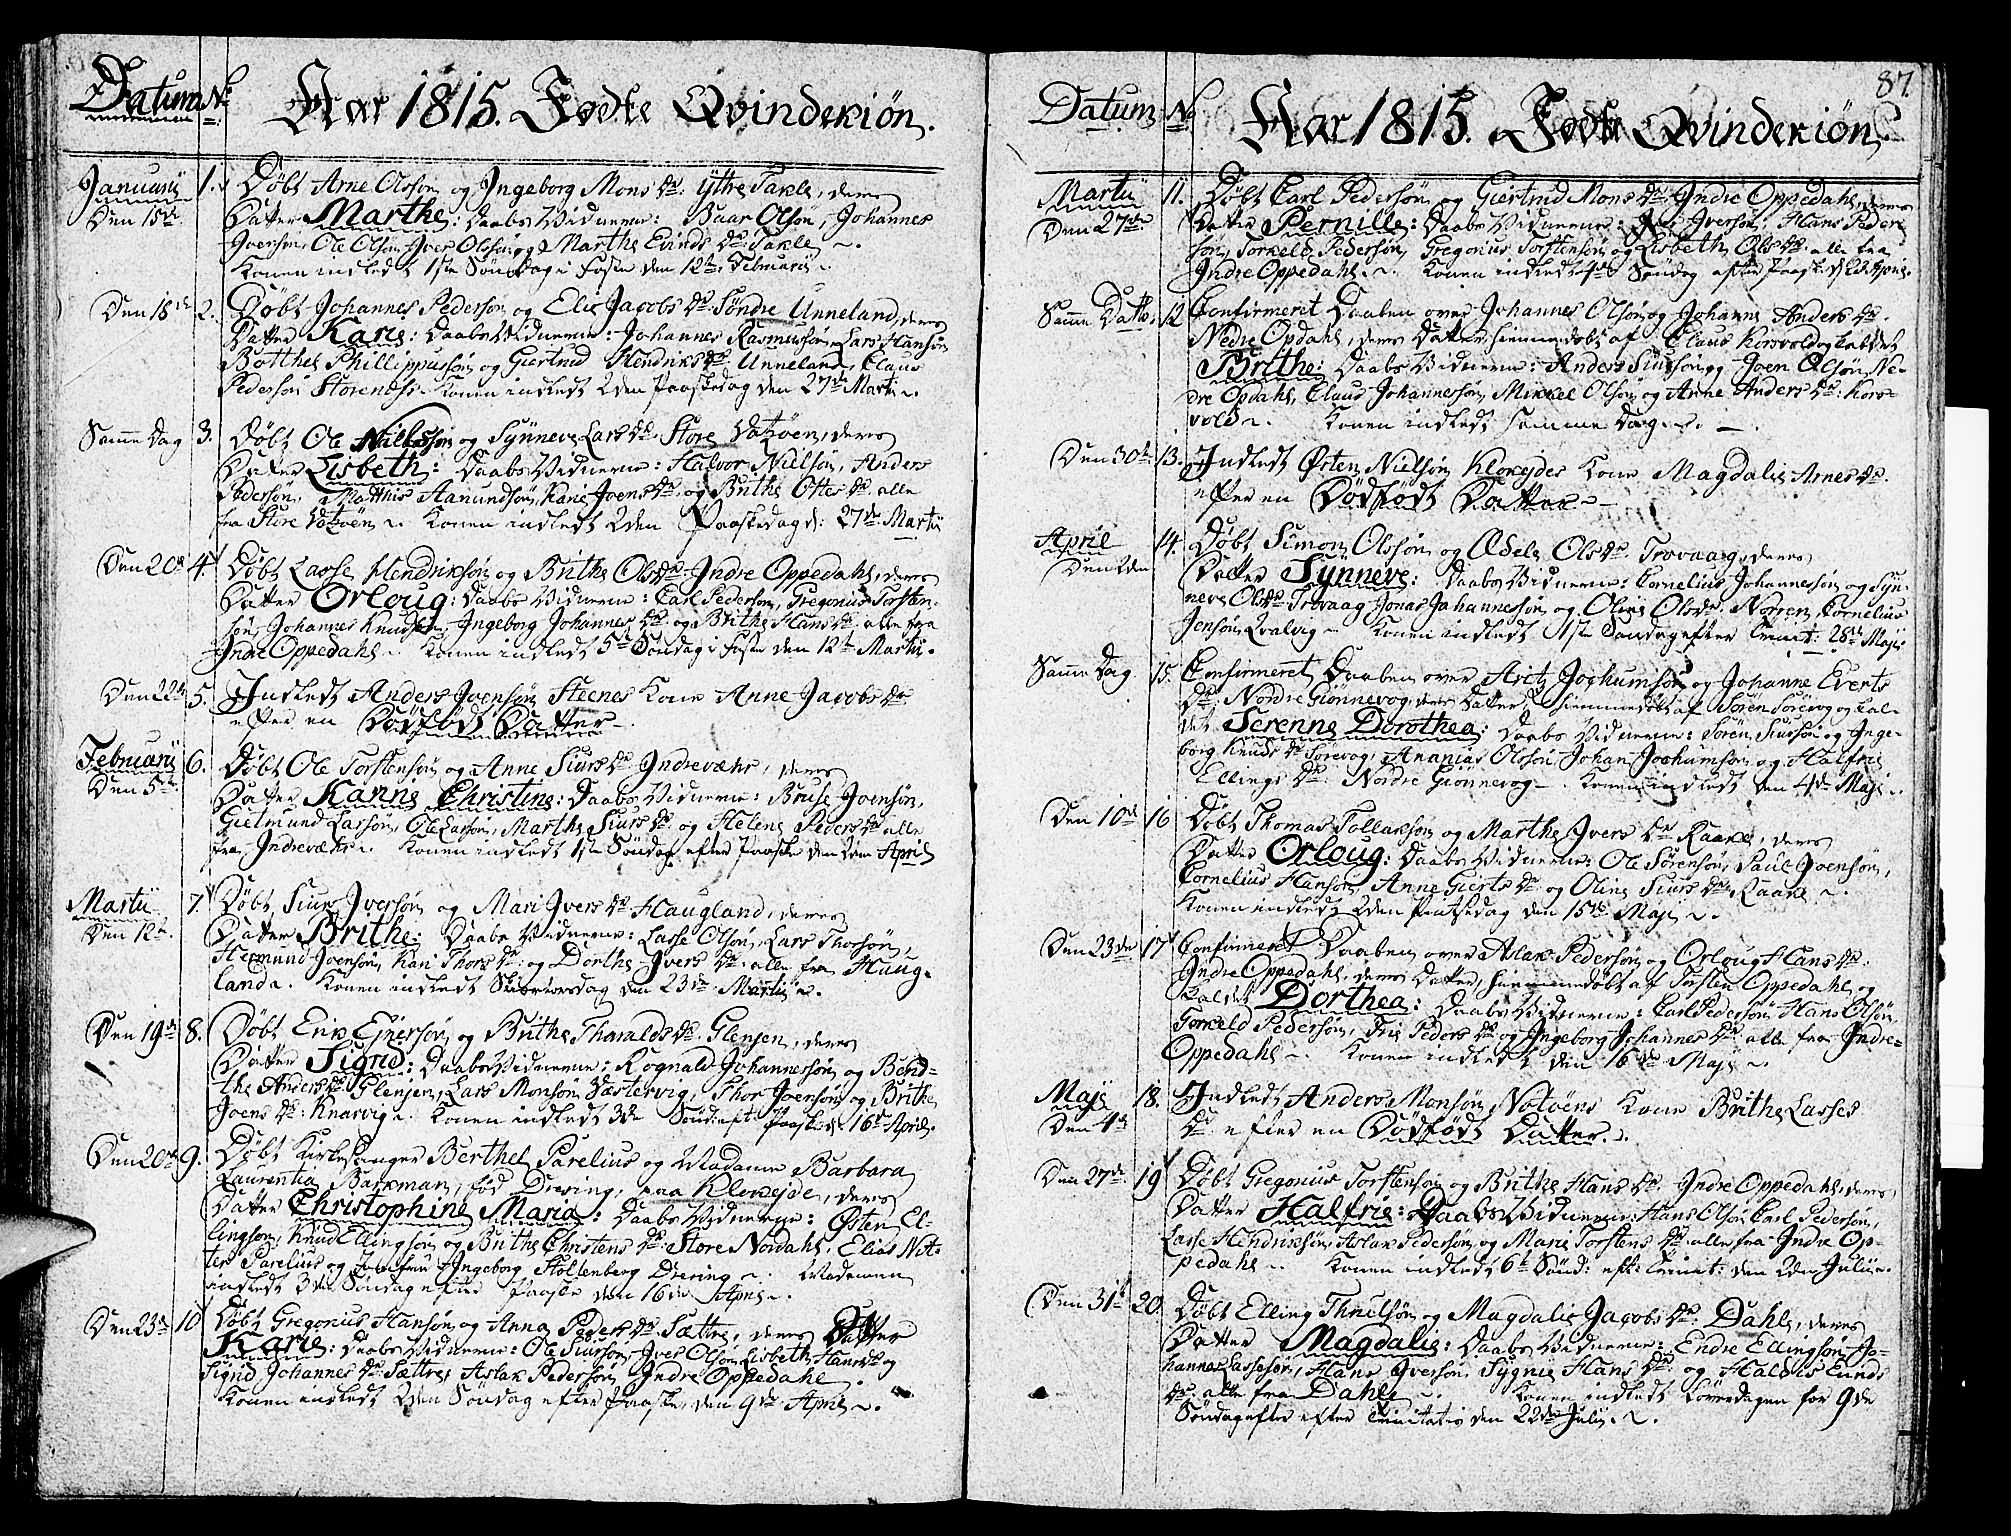 Datum No Aar 1815. Fødte Qvindekiön.
Januarii 1. Døbt Arne Olssøn og Ingeborg Mons Dr. Ytre Takle, deres
Den 15de Datter Marthe: Daabs Vidnerne: Baar Olsøn, Johannes
Joensøn, Ole Olsøn, Iver Olsøn og Marthe Evinds Dr. Takle.
Konen indledt 1ste Søndag i Faste den 12te Februarii.
Den 18de 2. Døbt Johannes Pedersøn og Elie Jacobs Dr. Søndre Unneland, deres
Datter Karie: Daabs Vidnerne: Johannes Rasmussøn, Lars Hansøn
Botthel Phillippussøn og Giertrud Hendriks Dr. Unneland, Claus
Pedersøn Storenæss. Konen indledt 2den Paaskedag den 27de Martii.
Samme Dag 3. Døbt Ole Nilssøn og Synneve Lars Dr. Store Vatzøen, deres
Datter Lisbeth: Daabs Vidnerne: Halvor Nielsøn, Anders
Pedersøn, Matthis Aamundsøn, Karie Joens Dr. og Brithe Ottes Dr. alle
fra Store Vatzøen. Konen indledt 2den Paaskedag d: 27de Martii
Den 20de 4. Døbt Lasse Hendriksøn og Brithe Ols Dr. Indre Oppedahl, deres
Datter Orloug: Daabs Vidnerne: Carl Pedersøn, Gregorius Torsten-
søn, Johannes Knudsøn, Ingeborg Johannes Dr. og Brithe Hans Dr. alle fra
Indre Oppedahl. Konen indledt 5te Søndag i Faste den 12te Martii.
Den 22de 5. Indledt Anders Joensøn Steenes Kone Anne Jacobs Dr.
efter en Dødfødt Datter.
Februarii 6. Døbt Ole Torstensøn og Anne Siurs Dr. Indreværs, deres
Den 5te Datter Hanne Christine: Daabs Vidnerne: Bruse Joensøn,
Gietmund Larssøn, Ole Larsøn, Marthe Siurs Dr. og Helene Peders Dr. alle
fra Indreværs. Konen indledt 1ste Søndag efter Paaske den 2den April
Martii 7. Døbt Siur Iversøn og Mari Ivers Dr. Haugland, deres
Den 12te Datter Brithe: Daabs Vidnerne: Lasse Olsøn, Lars Thorsøn,
Hermund Joensøn, Kari Thors Dr. og Dorthe Ivers Dr. alle fra Haug-
land. Konen indledt Skiertorsdag den 23de Martii.
Den 19de 8. Døbt Erik Ejnersøn og Brithe Tharalds Dr. Glensen, deres
Datter Sigrid: Daabs Vidnerne: Rognald Johannessøn og Bend-
the Anders Dr. Glensen, Lars Monsøn Væstervig, Thor Joensøn og Brithe
Joens Dr. Knarvig. Konen indledt 3de Sønd: eft: Paaske d: 16de April.
Den 20de 9. Døbt Kirkesanger Berthel Parelius og Madame Barbara
Laurentia Barkman, fød Drejing, paa Klokejde, deres
Datter Christophine Maria: Daabs Vidnerne: Østen El-
lingsøn, Knud Ellingsøn og Brithe Christens Dr. Store Nordahl, Elias Nit-
ter Parelius og Jomfru Ingeborg Holtenberg Drejing. Madamen
indledt 3de Søndag efter Paaske den 16de April.
Den 23de 10 Døbt Gregorius Hansøn og Anna Peders Dr. Sættre, deres Datter
Karie: Daabs Vidnerne: Ole Siursøn, Iver Olsøn, Lisbeth Hans Dr. og
Sigrid Johannes Dr. Sættre, Aslak Pedersøn, Indre Oppedahl.
Konen indledt 2den Søndag efter Paaske, den 9de April.
87.
Datum No Aar 1815. Fødte Qvindekiön
Martii 11. Døbt Carl Pedersøn og Giertrud Mons Dr. Indre Oppedahl, deres
Den 27de Datter Pernille: Daabs Vidnerne: Iversøn, Hans Peder-
søn, Torkeld Pedersøn, Gregorius Torstensøn og Lisbeth Ols Dr. alle fra
Indre Oppedahl. Konen indledt 4de Søndag efter Paaske d: 23 April.
Samme Datto 12 Confirmeret Daaben over Johannes Olsøn og Johanne Anders Dr.
Nedre Opdahl, deres Datter, hiemmedøbt af Claus Korsvold og kaldet
Brithe: Daabs Vidnerne: Anders Siursøn og Joen Olsøn Ne-
dre Opdahl, Claus Johannessøn, Mikkel Olsøn og Anne Anders Dr. Kors-
vold. Konen indledt samme Dag.
Den 30te 13. Indledt Østen Nielsøn Klokejdes Kone Magdalie Arnes Dr.
efter en Dødfødt Datter.
April 14. Døbt Simon Olssøn og Adele Ols Dr. Trovaag, deres
Den 2den Datter Synneve: Daabs Vidnerne: Cornelius Johannessøn og Syn-
neve Ols Dr. Trovaag, Jonas Johannessøn og Oline Ols Dr. Norren, Cornelius
Jensøn Qvalvig. Konen indledt 1ste Søndag efter Trinit: 28de Maji.
Samme Dag 15. Confirmeret Daaben over Aritz Jochumsøn og Johanne Everts
Dr. Nordre Giønnevog, deres Datter, hiemmedøbt af Søren Sørevog og kal-
det Serenne Dorothea: Daabs Vidnerne: Søren Siursøn og Inge-
borg Knuds Dr. Sørevog, Ananias Olsøn, Johan Jochumsøn og Halfrie
Ellings Dr. Nordre Giønnevog. Konen indledt den 4de Maji.
Den 10de 16 Døbt Thomas Tollaksøn og Marthe Ivers Dr. Raake, deres
Datter Orloug: Daabs Vidnerne: Ole Sørensøn, Paul Joensøn,
Cornelius Hansøn, Anne Gierts Dr. og Oline Siurs Dr. Raake.
Konen indledt 2den Pintsedag den 15de Maji.
Den 23de 17 Confirmeret Daaben over Aslak Pedersøn og Orloug Hans Dr.
Indre Oppedahl, deres Datter, hiemmedøbt af Torsten Oppedahl og
kaldet Dorthea: Daabs Vidnerne: Carl Pedersøn, Hans Olsøn,
Torkeld Pedersøn, Trie Peders Dr. og Ingeborg Johannes Dr. alle fra Indre-
Oppedahl. Konen indledt den 16de Maji.
Maji 18. Indledt Anders Monsøn Notøens Kone Brithe Lasses
Den 4de Dr. efter en Dødfødt Datter.
Den 27de 19 Døbt Gregorius Torstensøn og Brithe Hans Dr. Indre Oppedahl, deres
Datter Halfrie: Daabs Vidnerne: Hans Olsøn, Carl Pedersøn,
Lasse Hendriksøn, Aslak Pedersøn og Marie Torstens Dr. alle fra Indre Op-
pedahl. Konen indledt 6te Sønd: eft: Trinit: den 2den Julii.
Den 31te 20. Døbt Elling Thrulsøn og Magdalie Jacobs Dr. Dahl, deres
Datter Magdalie: Daabs Vidnerne: Endre Ellingsøn, Jo-
hannes Lassesøn, Hans Iversøn, Sygnie Hans Dr. og Haldis Evinds
Dr. alle fra Dahl. Konen indledt Løverdagen for 9de
Søndag efter efter Trinitatis den 22de Julii.